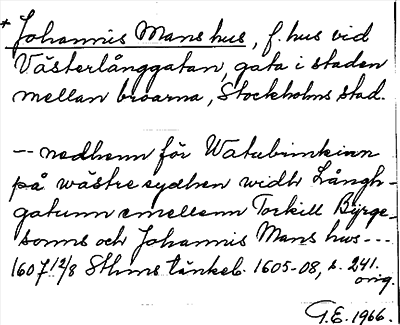 * Johannis Mans hus, f. hus vid
Västerlånggatan, gata i staden
mellan broarna, Stockholms stad.
-- nedhenn för Watubrinkinn
på wästre sydhen widh Långh-
gatunn emellenn Torkill Byrge-
sonns och Johannis Mans hus ---
1607 12/8 Sthms tänkeb. 1605-08, s. 241.
orig.
G.E. 1966.